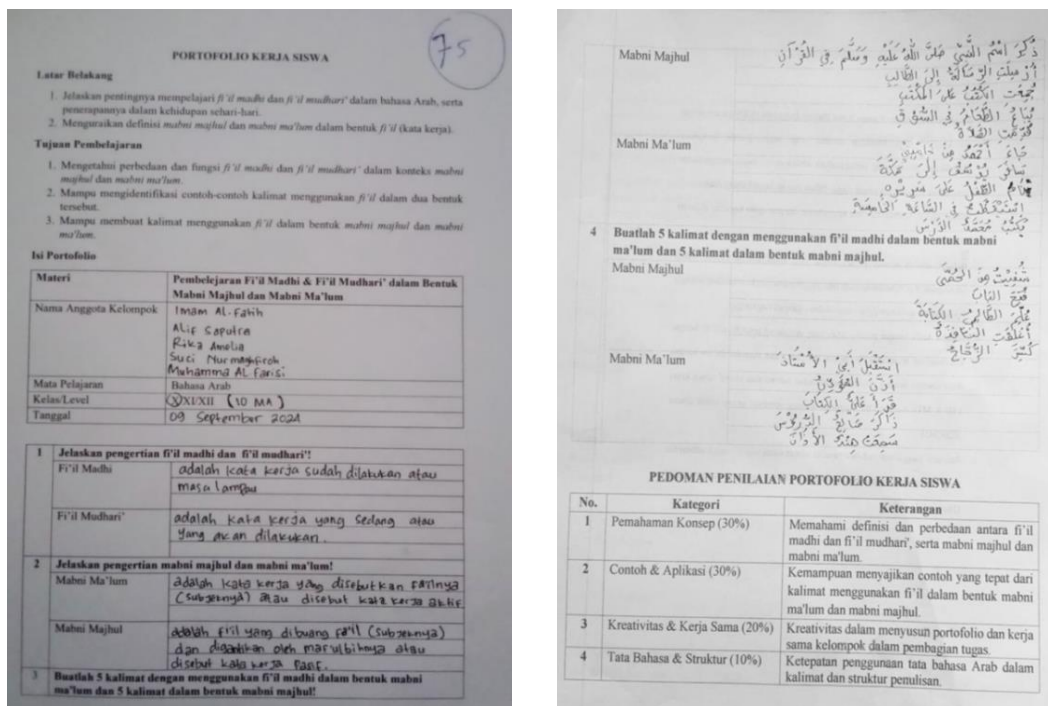 75
PORTOFOLIO KERJA SISWA
Latar Belakang
1. Jelaskan pentingnya mempelajari fi'il madhi dan fi'il mudhari' dalam bahasa Arab, serta
penerapannya dalam kehidupan sehari-hari.
2. Menguraikan definisi mabni majhul dan mabni ma'lum dalam bentuk fi'il (kata kerja).
Tujuan Pembelajaran
1. Mengetahui perbedaan dan fungsi fi'il madhi dan fi'il mudhari' dalam konteks mabni
majhul dan mabni ma'lum.
2. Mampu mengidentifikasi contoh-contoh kalimat menggunakan fi'il dalam dua bentuk
tersebut.
3. Mampu membuat kalimat menggunakan fi'il dalam bentuk mabni majhul dan mabni
ma'lum.
Isi Portofolio
Materi Pembelejaran Fi'il Madhi & Fi'il Mudhari' dalam Bentuk
Mabni Majhul dan Mabni Ma'lum
Nama Anggota Kelompok Imam AL-Fatih
Alif Saputra
Rika Amelia
Suci Nur
Muhamma AL Farisi
Mata Pelajaran Bahasa Arab
Kelas/Level X/XI/XII (10 MA)
Tanggal 09 September 2024
1 Jelaskan pengertian fi'il madhi dan fi'il mudhari'!
Fi'il Madhi adalah kata kerja sudah dilakukan atau
masa lampau
Fi'il Mudhari' adalah kata kerja yang sedang atau
yang akan dilakukan.
2 Jelaskan pengertian mabni majhul dan mabni ma'lum!
Mabni Ma'lum adalah kata kerja yang disebutkan
(subjeknya) atau disebut kata kerja aktif
Mabni Majhul adalah fi'il yang dibuang fa'il (subjeknya)
dan digantikan oleh atau
disebut kata kerja pasif.
3 Buatlah 5 kalimat dengan menggunakan fi'il madhi dalam bentuk mabni
ma'lum dan 5 kalimat dalam bentuk mabni majhul!
Mabni Majhul ذُكِرَ اسْمُ النَّبِيِّ صَلَّى اللهُ عَلَيْهِ وَسَلَّمَ فِي القُرْآنِ
الرِّسَالَةُ إِلَى الطَّالِبِ
الكُتُبُ عَلَى
يُبَاعُ الطَّعَامُ فِي السُّوْقِ
Mabni Ma'lum أَحْمَدُ مِنْ
سَافَرَ يُوْسُفُ إِلَى
الطِّفْلُ عَلَى سَرِيْرِهِ
فِي السَّاعَةِ الخَامِسَةِ
يَكْتُبُ مُحَمَّدٌ الدَّرْسَ
4 Buatlah 5 kalimat dengan menggunakan fi'il madhi dalam bentuk mabni
ma'lum dan 5 kalimat dalam bentuk mabni majhul.
Mabni Majhul مِنَ الحُمَّى
فُتِحَ البَابُ
الكِتَابَةَ
أُغْلِقَتِ النَّافِذَةُ
كُسِرَ الزُّجَاجُ
Mabni Ma'lum اِسْتَقْبَلَ أَبِيْ الأُسْتَاذَ
أَذَّنَ المُؤَذِّنُ
قَرَأَ الكِتَابَ
ذَاكَرَ صَالِحٌ الدُّرُوْسَ
سَمِعَتْ هِنْدٌ الأَذَانَ
PEDOMAN PENILAIAN PORTOFOLIO KERJA SISWA
No. Kategori Keterangan
1 Pemahaman Konsep (30%) Memahami definisi dan perbedaan antara fi'il
madhi dan fi'il mudhari', serta mabni majhul dan
mabni ma'lum.
2 Contoh & Aplikasi (30%) Kemampuan menyajikan contoh yang tepat dari
kalimat menggunakan fi'il dalam bentuk mabni
ma'lum dan mabni majhul.
3 Kreativitas & Kerja Sama (20%) Kreativitas dalam menyusun portofolio dan kerja
sama kelompok dalam pembagian tugas.
4 Tata Bahasa & Struktur (10%) Ketepatan penggunaan tata bahasa Arab dalam
kalimat dan struktur penulisan.